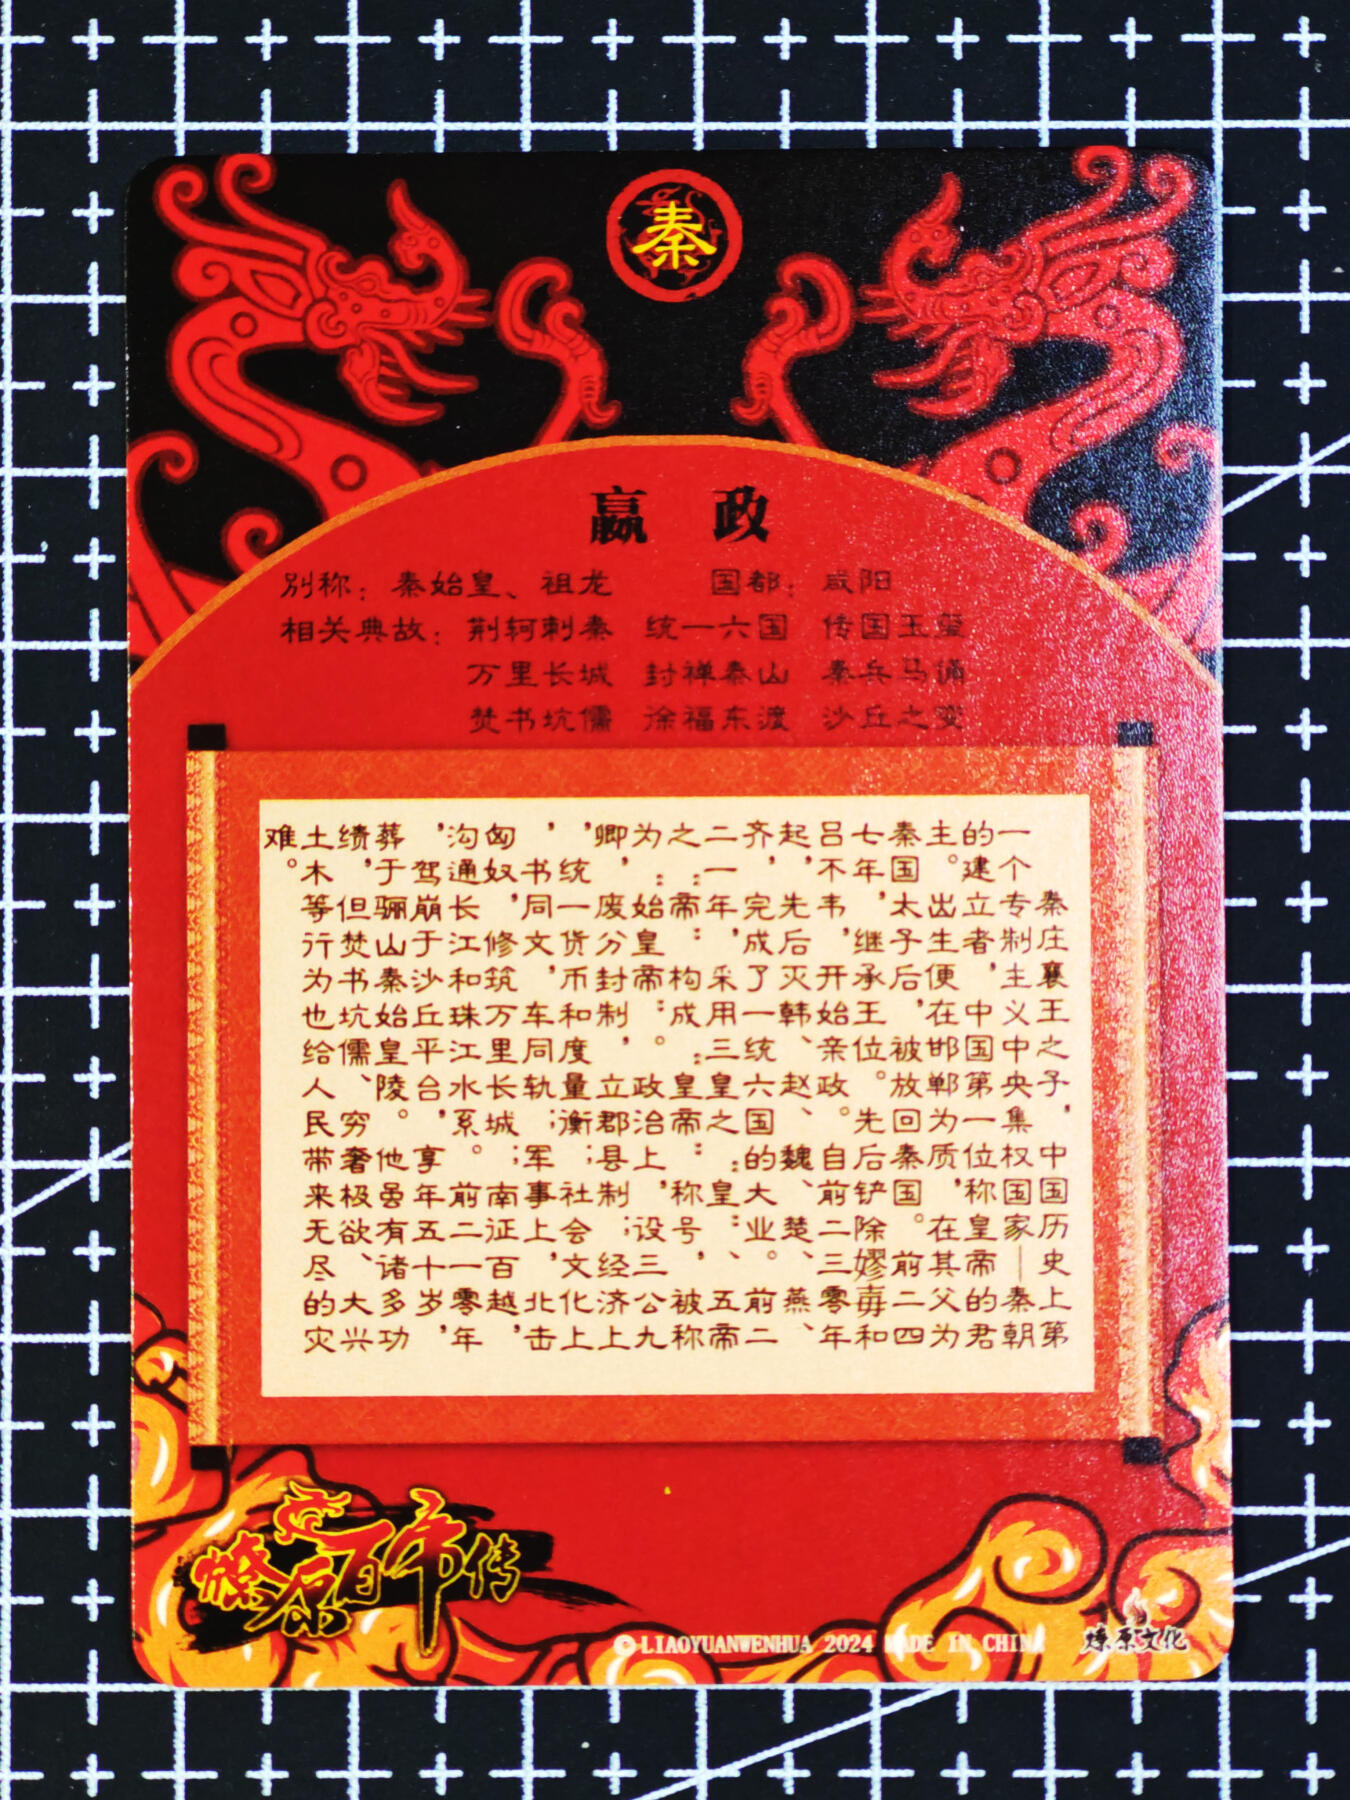 秦
嬴 政
别称：秦始皇、祖龙 国都：咸阳
相关典故：荆轲刺秦 统一六国 传国玉玺
万里长城 封禅泰山 秦兵马俑
焚书坑儒 徐福东渡 沙丘之变
秦庄襄王之子，中国历史上第
一个专制主义中央集权国家—秦朝
的建立者，中国第一位称皇帝的君
主。出生便在邯郸为质，在其父为
秦国太子后，被放回秦国。前二四
七年，继承王位。先后铲除嫪毐和
吕不韦，开始亲政。自前二三零年
起，先后灭韩、赵、魏、楚、燕、
齐，完成了一统六国的大业。前二
二一年，采用三皇之“皇”、五帝
之“帝”构成“皇帝”称号，被称
为“始皇帝”。政治上，设三公九
卿，废分封制，立郡县制；经济上
，统一货币和度量衡；社会文化上
，书同文，车同轨；军事上，北击
匈奴，修筑万里长城；南征百越，
沟通长江和珠江水系。前二一零年
，驾崩于沙丘平台，享年五十岁，
葬于骊山秦始皇陵。他虽有诸多功
绩，但焚书坑儒、穷奢极欲、大兴
土木等行为也给人民带来无尽的灾
难。
燎原百帝传
©LIAOYUANWENHUA 2024 MADE IN CHINA
燎原文化